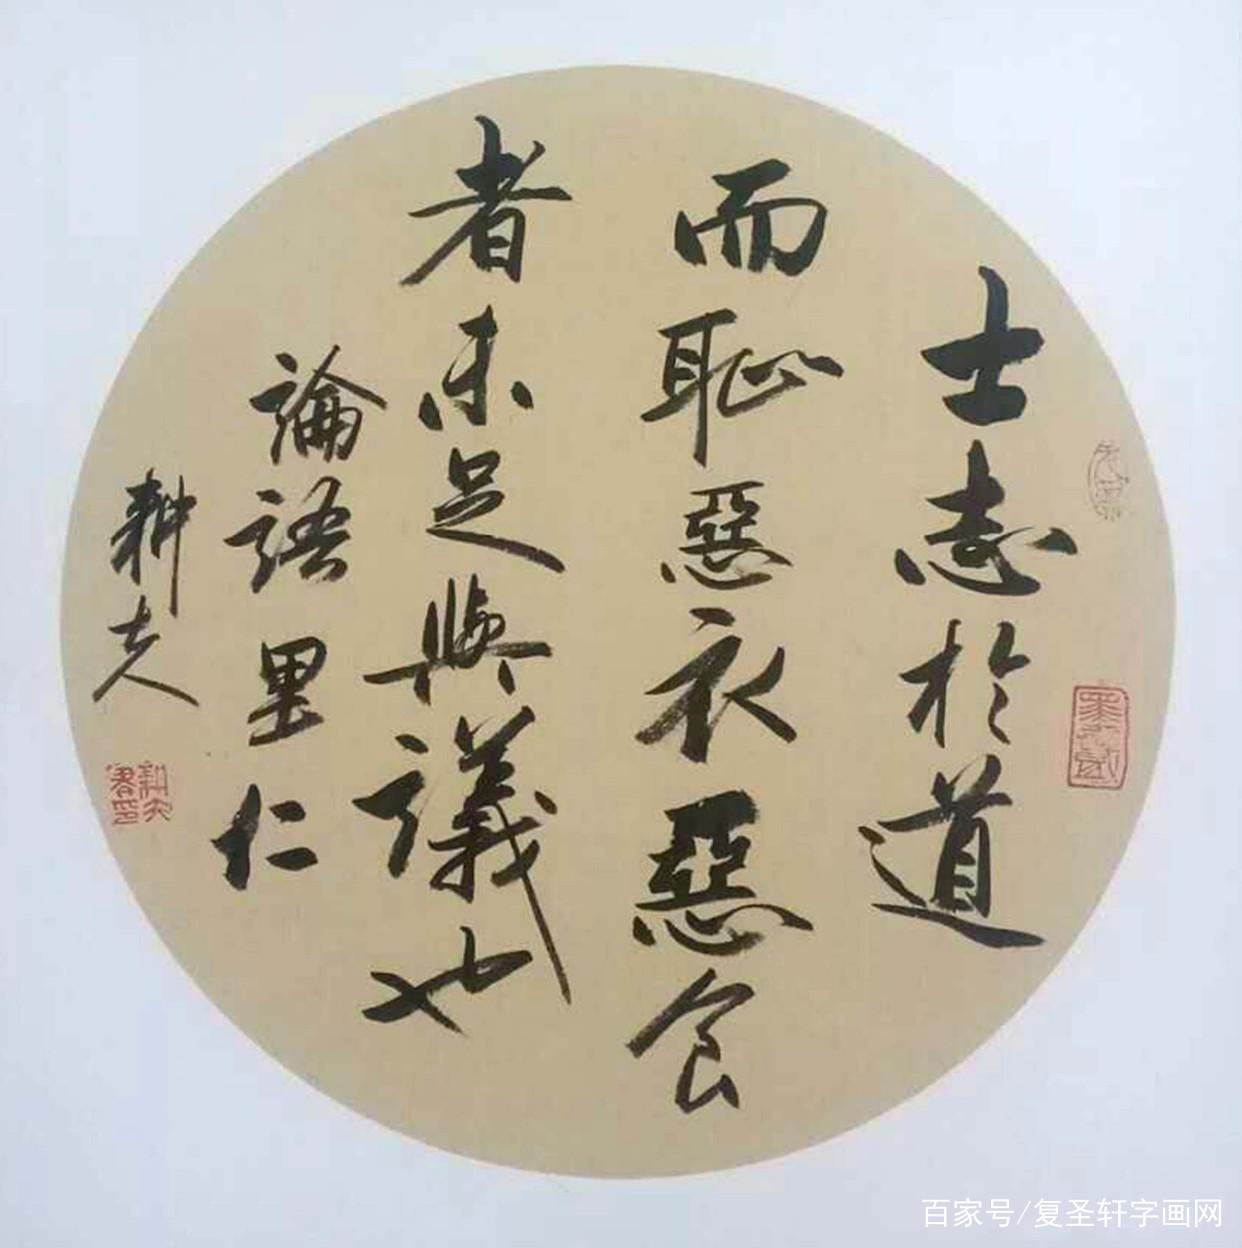 士志於道
而恥惡衣惡食
者未足與議也
論語里仁
耕夫
百家号/复圣轩字画网